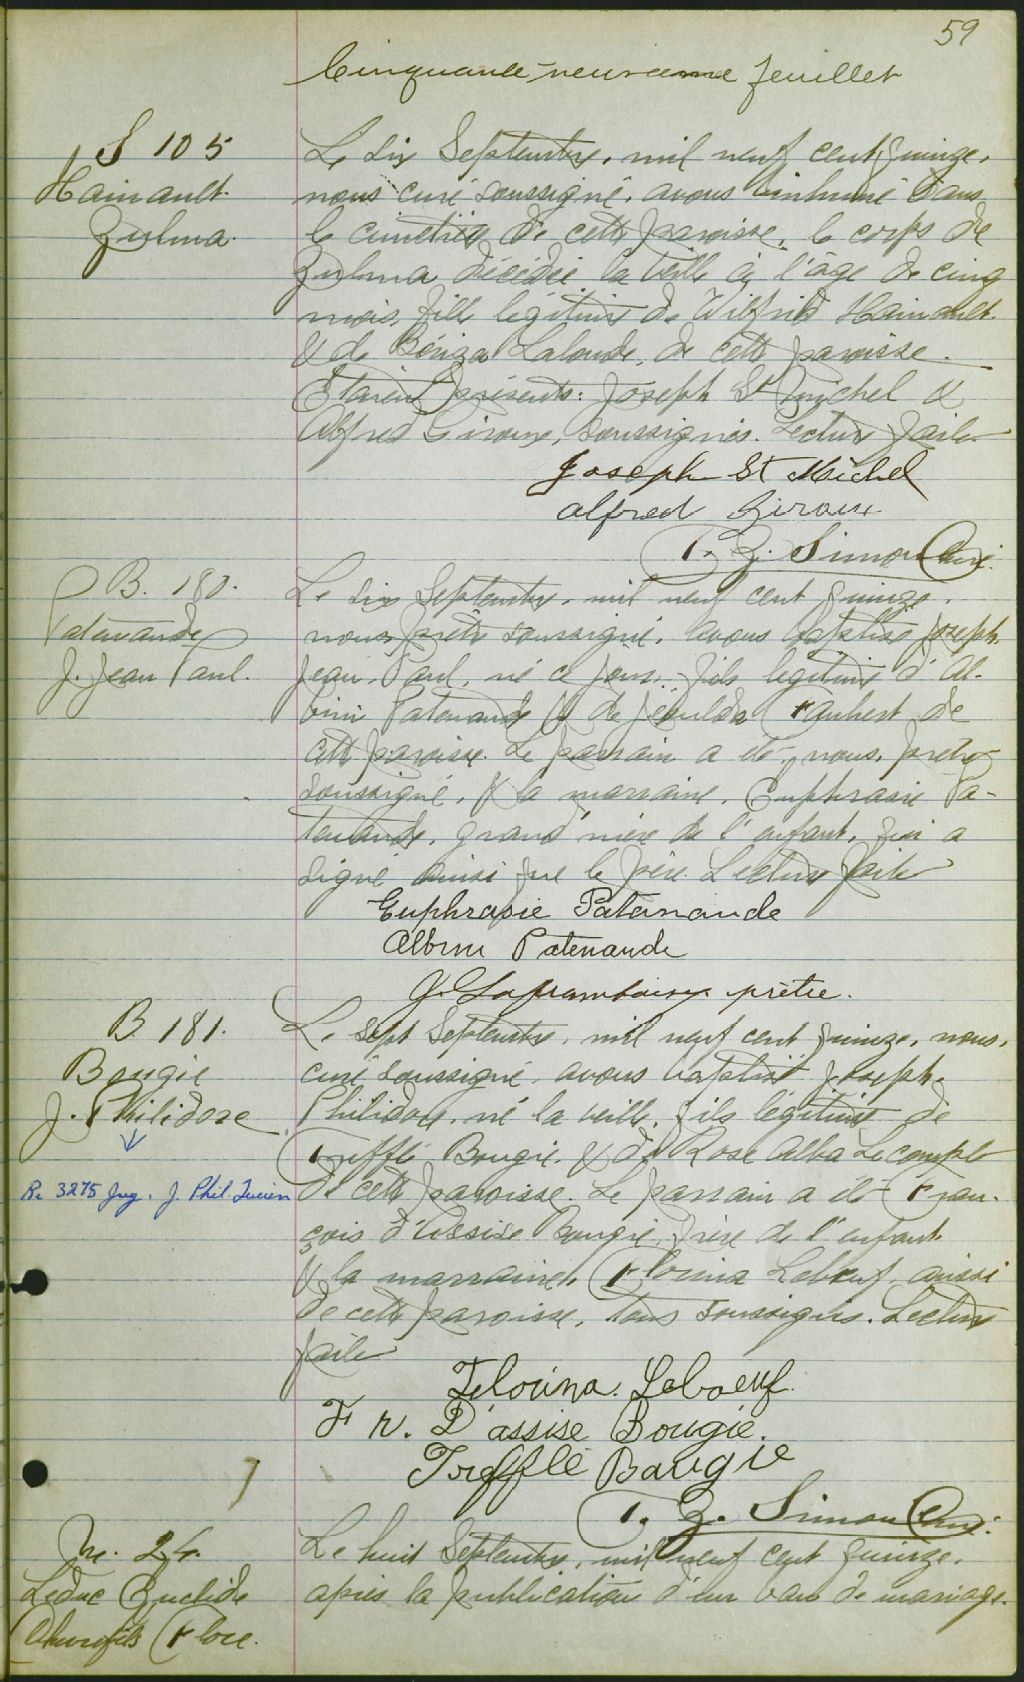 59
Cinquante-neuvième feuillet
S 105
Hainault
Zulma.
Le six Septembre, mil neuf cent quinze,
nous curé soussigné, avons inhumé dans
le cimetière de cette paroisse, le corps de
Zulma décédée la veille à l'âge de cinq
mois, fille légitime de Wilfrid Hainault
& de Lalonde, de cette paroisse.
Étaient présents: Joseph St Michel &
Alfred Giroux, soussignés. Lecture faite
Joseph St Michel
Alfred Giroux
Simon Curé.
B. 180.
Patenaude
J. Jean Paul.
Le six Septembre, mil neuf cent quinze,
nous, prêtre soussigné, avons baptisé Joseph,
Jean, Paul, né ce jour, fils légitime d'Al-
bini Patenaude & de Faubert de
cette paroisse. Le parrain a été, nous, prêtre
soussigné, & la marraine, Euphrasie Pa-
tenaude, grand'mère de l'enfant, qui a
signé ainsi que le père. Lecture faite
Euphrasie Patenaude
Albini Patenaude
J. Laframboise prêtre.
B. 181.
Bougie
J. Philidore
R. 3275 Jug. J. Phil. Lucien
Le sept Septembre, mil neuf cent quinze, nous,
curé soussigné, avons baptisé Joseph,
Philidore, né la veille, fils légitime de
Trefflé Bougie, & de Rose Alba Lecompte
de cette paroisse. Le parrain a été Fran-
çois d'Assise Bougie, frère de l'enfant
& la marraine, Florina Leboeuf, aussi
de cette paroisse, tous soussignés. Lecture
faite
Florina Leboeuf.
Fr. D'assise Bougie.
Trefflé Bougie
Simon Curé.
M. 24.
Leduc Euclide
Flore.
Le huit Septembre, mil neuf cent quinze,
après la publication d'un ban de mariage